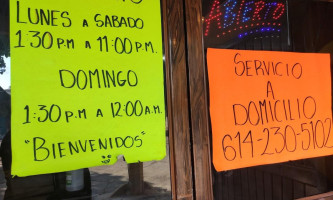 LUNES A SABADO
1:30 PM A 11:00 PM.
DOMINGO
1:30 PM A 12:00 A.M.
"BIENVENIDOS"
ABIERTO
SERVICIO
A
DOMICILIO
614-230-5102